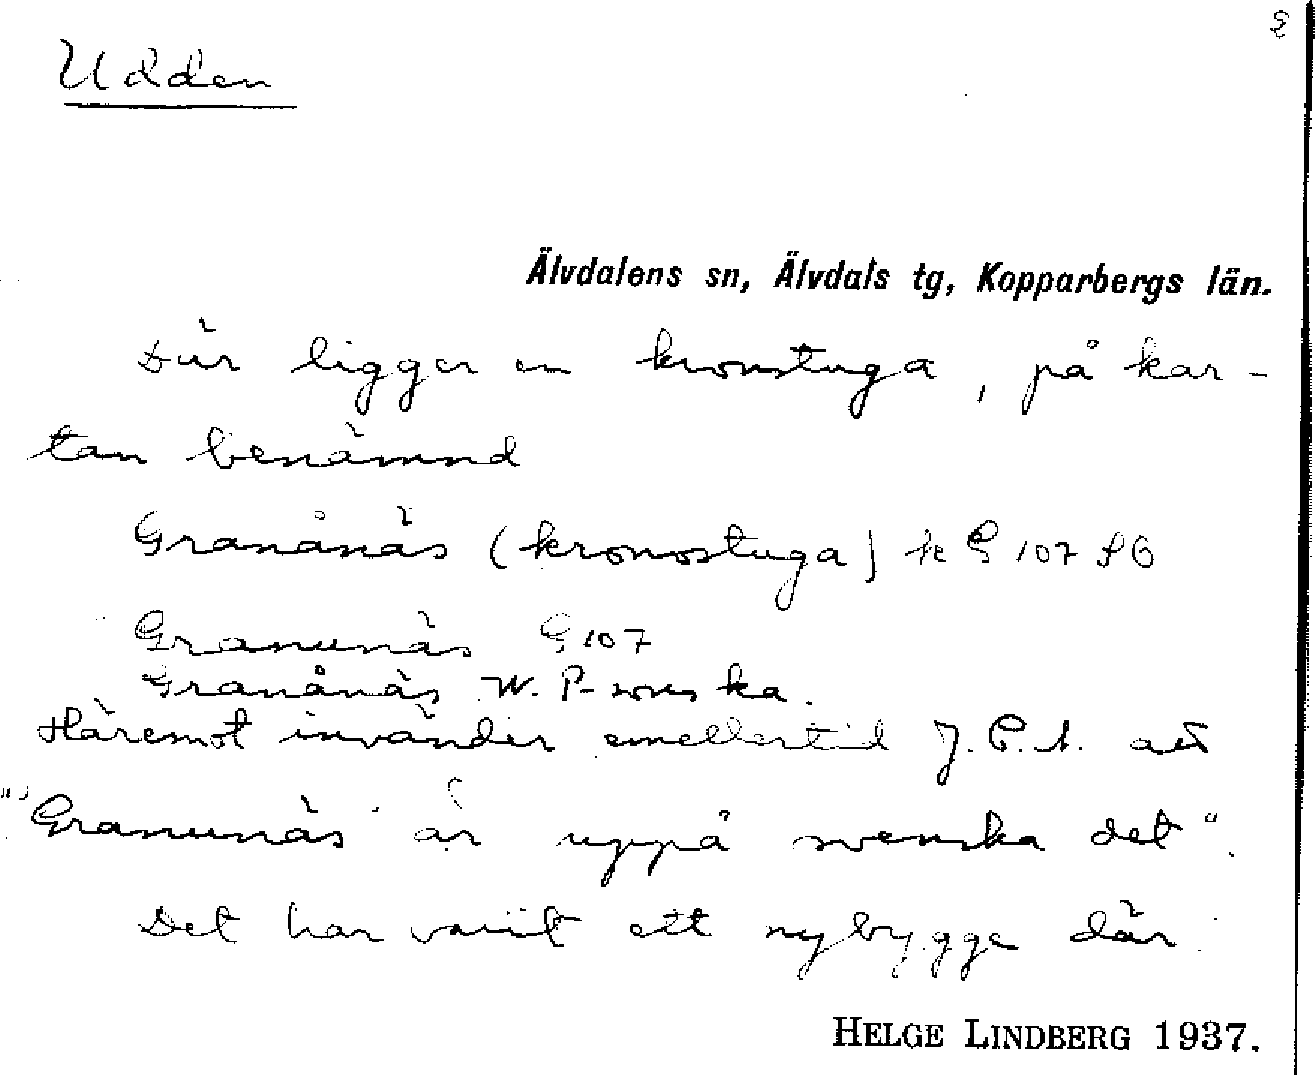 2
Udden
Älvdalens sn, Älvdals tg, Kopparbergs län.
Där ligger en kronstuga, på kar-
tan benämnd
Granånäs (kronostuga) k G 107 SO
Granunäs G 107
Granånäs W. P-sonska.
Häremot invänder emellertid J. P. A. att
"'Granunäs' är uppå svenska det".
Det har varit ett nybygge där.
HELGE LINDBERG 1937.